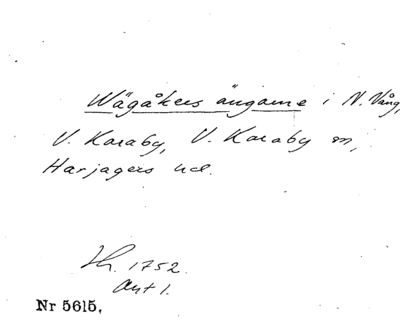 Wägåkers ängarne i N. Vång,
V. Karaby, V. Karaby sn,
Harjagers hd.
1752.
Akt 1.
Nr 5615.